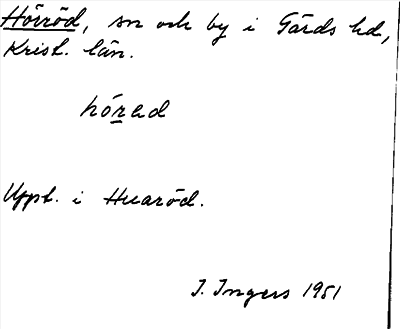 Hörröd, sn och by i Gärds hd,
Krist. län.
hórad
Uppt. i Huaröd.
I. Ingers 1951